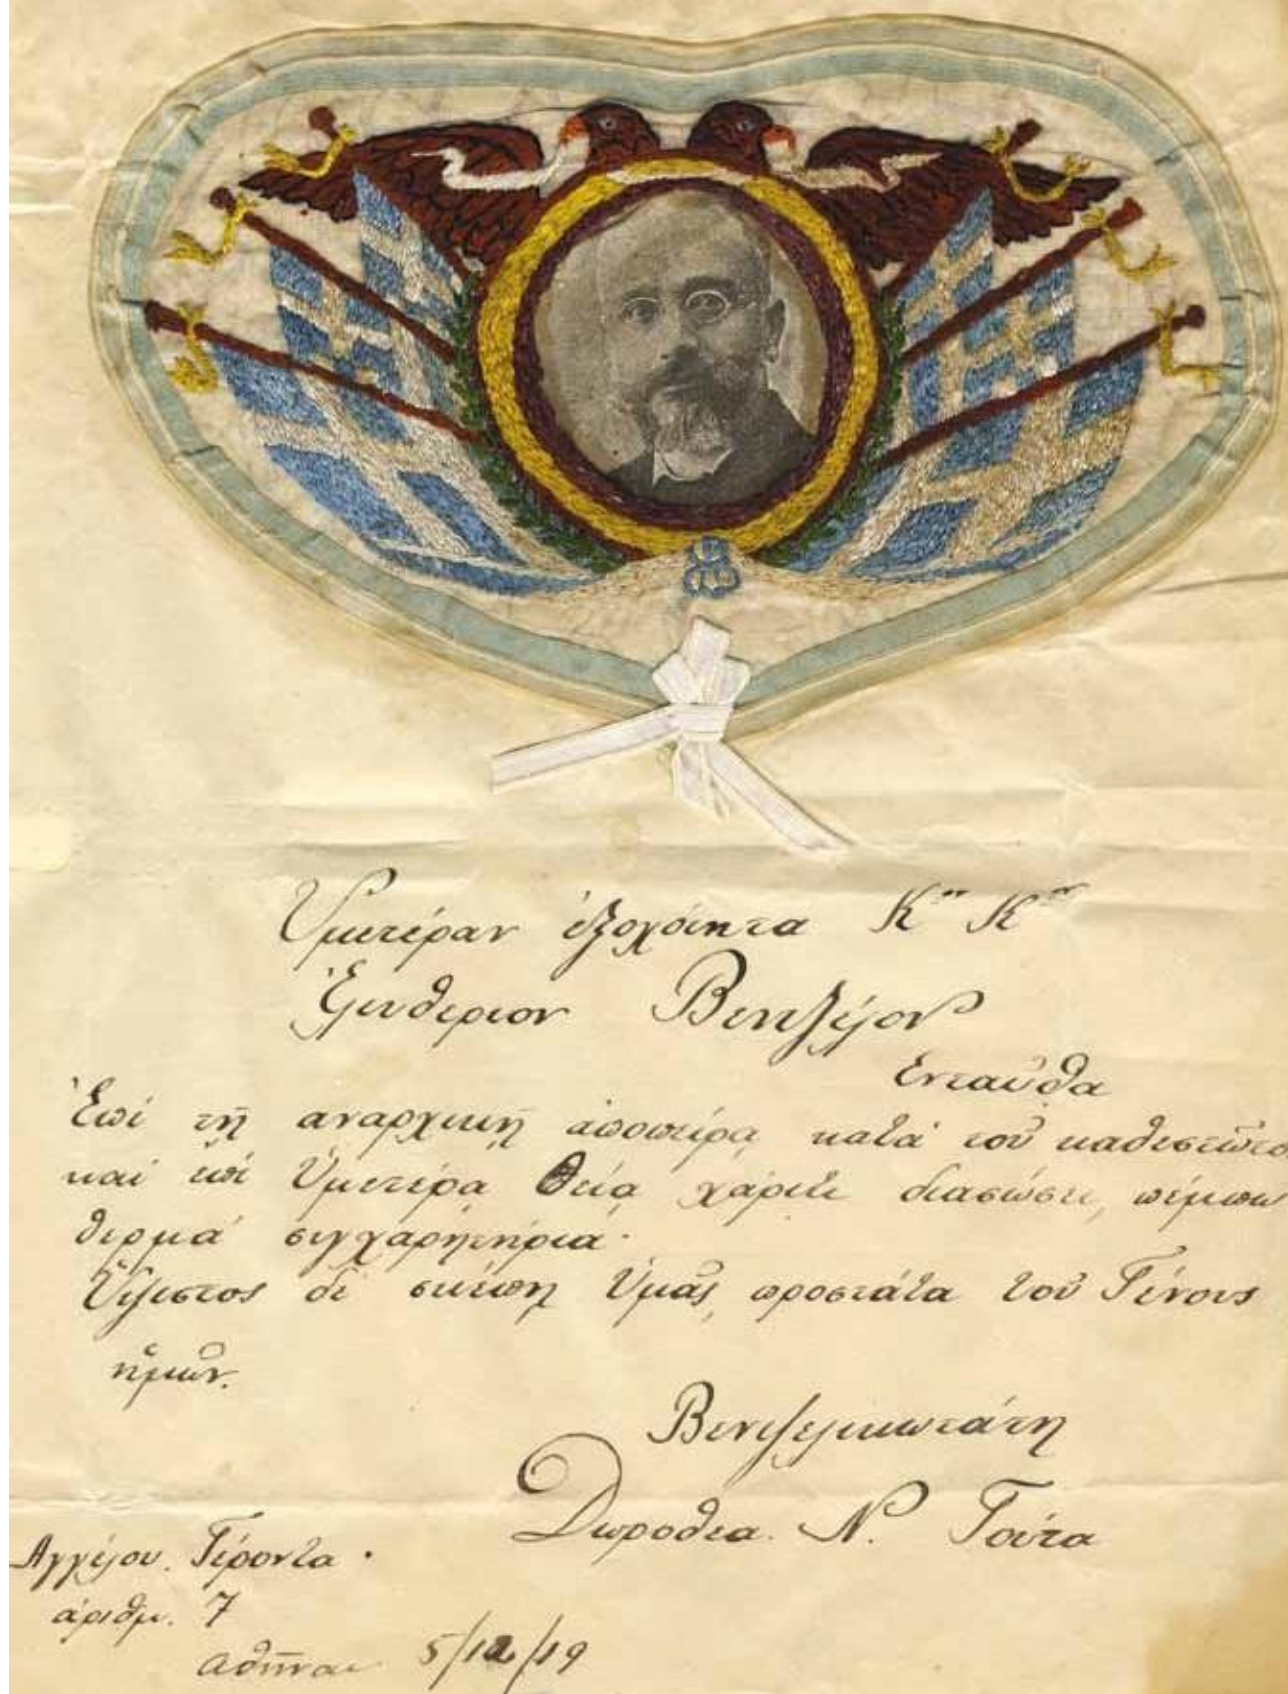 Ὑμετέραν ἐξοχότητα Κον Κον
Ἐλευθέριον Βενιζέλον
Ενταῦθα
Ἐπί τῇ αναρχικῇ ἀποπείρᾳ κατά τοῦ καθεστῶτος
καί ἐπί Ὑμετέρᾳ θείᾳ χάριτι διασώσει, πέμπω
θερμά συγχαρητήρια.
Ὕψιστος δέ σκέπῃ Ὑμᾶς, προστάτα τοῦ Γένους
ἡμῶν.
Βενιζελικωτάτη
Δωροθέα. Ν. Γούτα
Αγγέλου. Γέροντα.
ἀριθμ. 7
αθῆναι 5/12/19